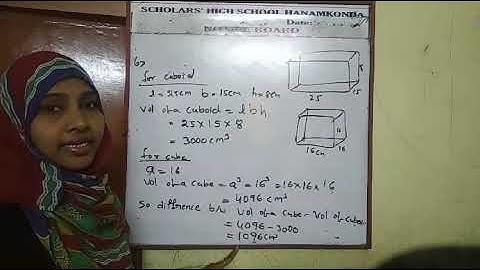 SCHOLARS' HIGH SCHOOL HANAMKONDA
Date:
NOTICE BOARD
6)
for cuboid
l = 25cm b = 15cm h = 8cm
Vol of a cuboid = l b h
= 25 x 15 x 8
= 3000 cm³
8
15
25
for cube
a = 16
Vol of a cube = a³ = 16³ = 16 x 16 x 16
= 4096 cm³
16cm
16
So difference b/w Vol of a cube - Vol of cuboid
= 4096 - 3000
= 1096 cm³